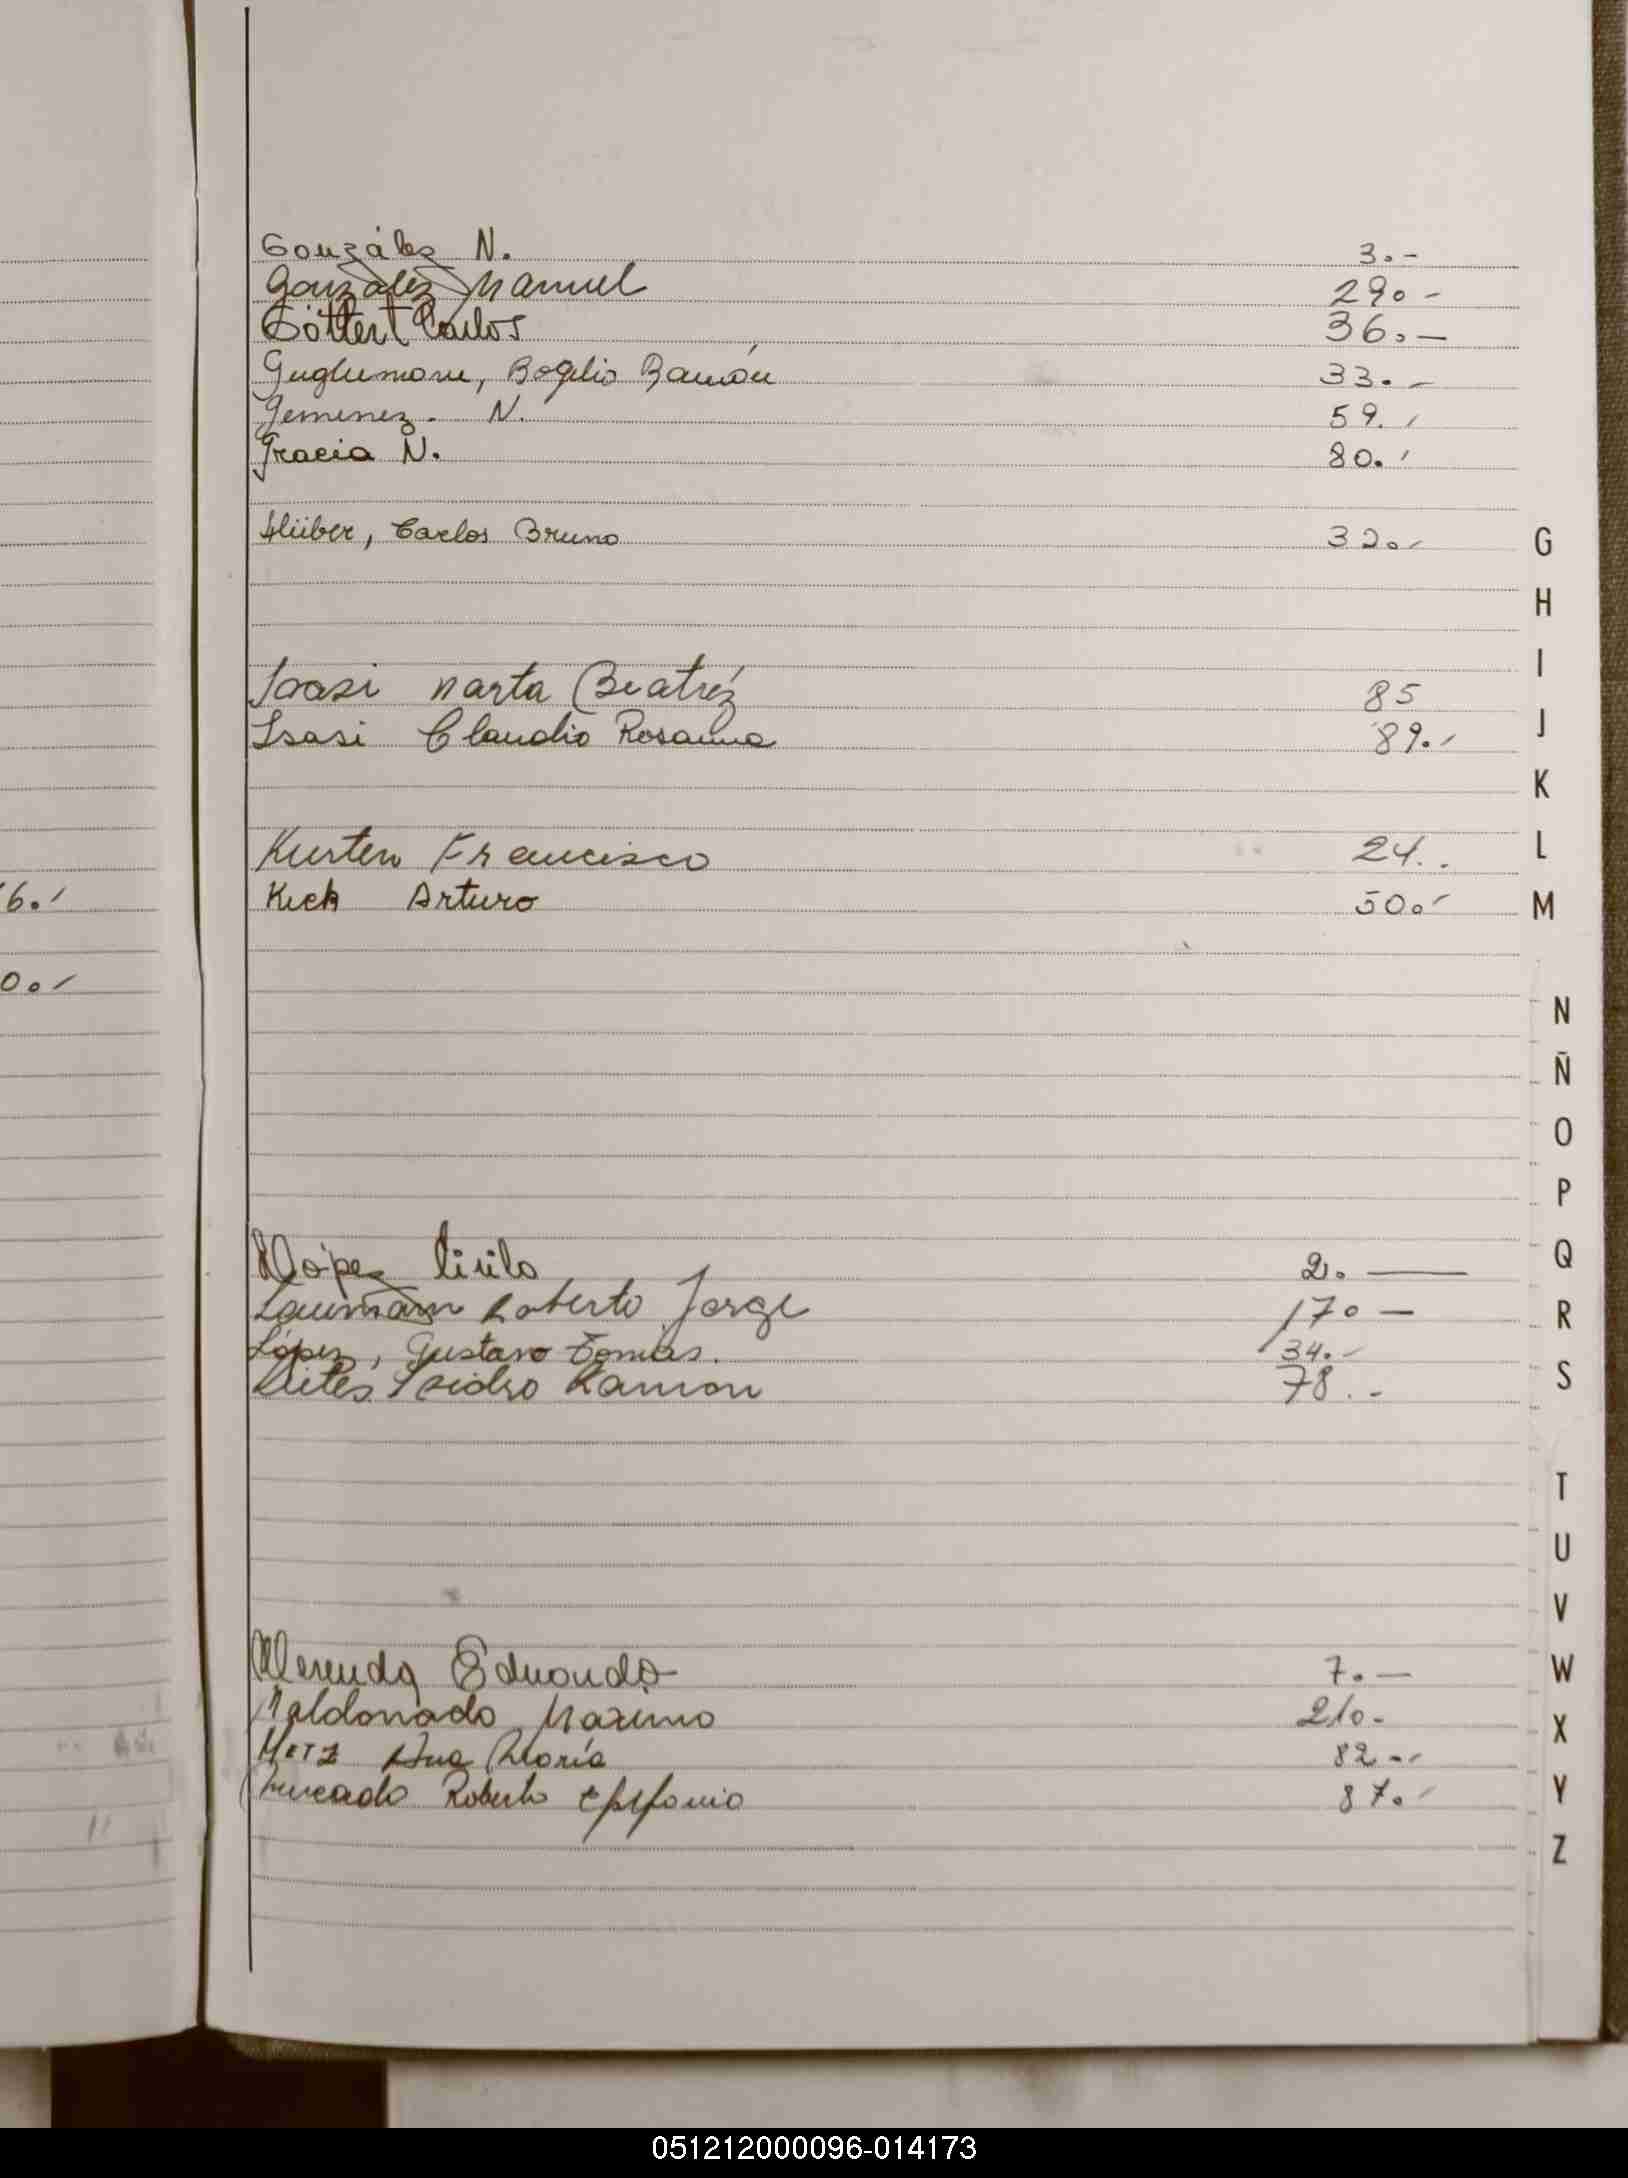 González N. 3.-
González Manuel 29.-
Göttert Carlos 36.-
Guglumone, Bogelio Ramón 33.-
Jemenez. N. 59.-
Gracia N. 80.-
Hüber, Carlos Bruno 32.-
G
H
I
Isasi Marta Beatréz 85
J
Isasi Claudio Rosanna 89.-
K
Kurten Francisco 24..
L
6.-
Kick Arturo 50.-
M
0.-
N
Ñ
O
P
Q
López Cirilo 2.-
Laumann Roberto Jorge 17.-
R
López, Gustavo Tomás. 34.-
S
Isidro Ramon 78.-
T
U
V
W
Merenda Eduardo 7.-
Maldonado Maximo 21.-
X
Metz Ana María 82.-
Y
Mercado Roberto Epifanio 87.-
Z
051212000096-014173